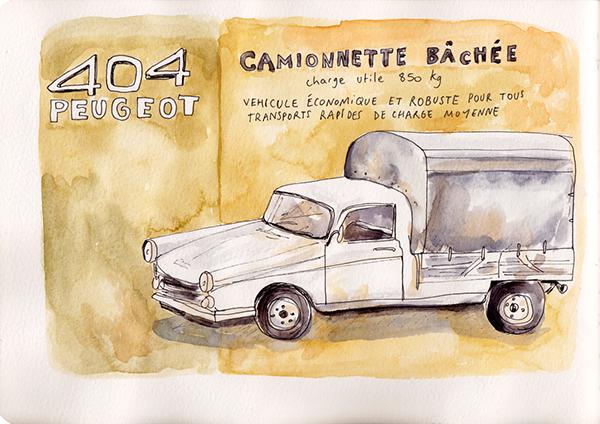 404
PEUGEOT
CAMIONNETTE BÂCHÉE
charge utile 850 kg
VEHICULE ÉCONOMIQUE ET ROBUSTE POUR TOUS
TRANSPORTS RAPIDES DE CHARGE MOYENNE